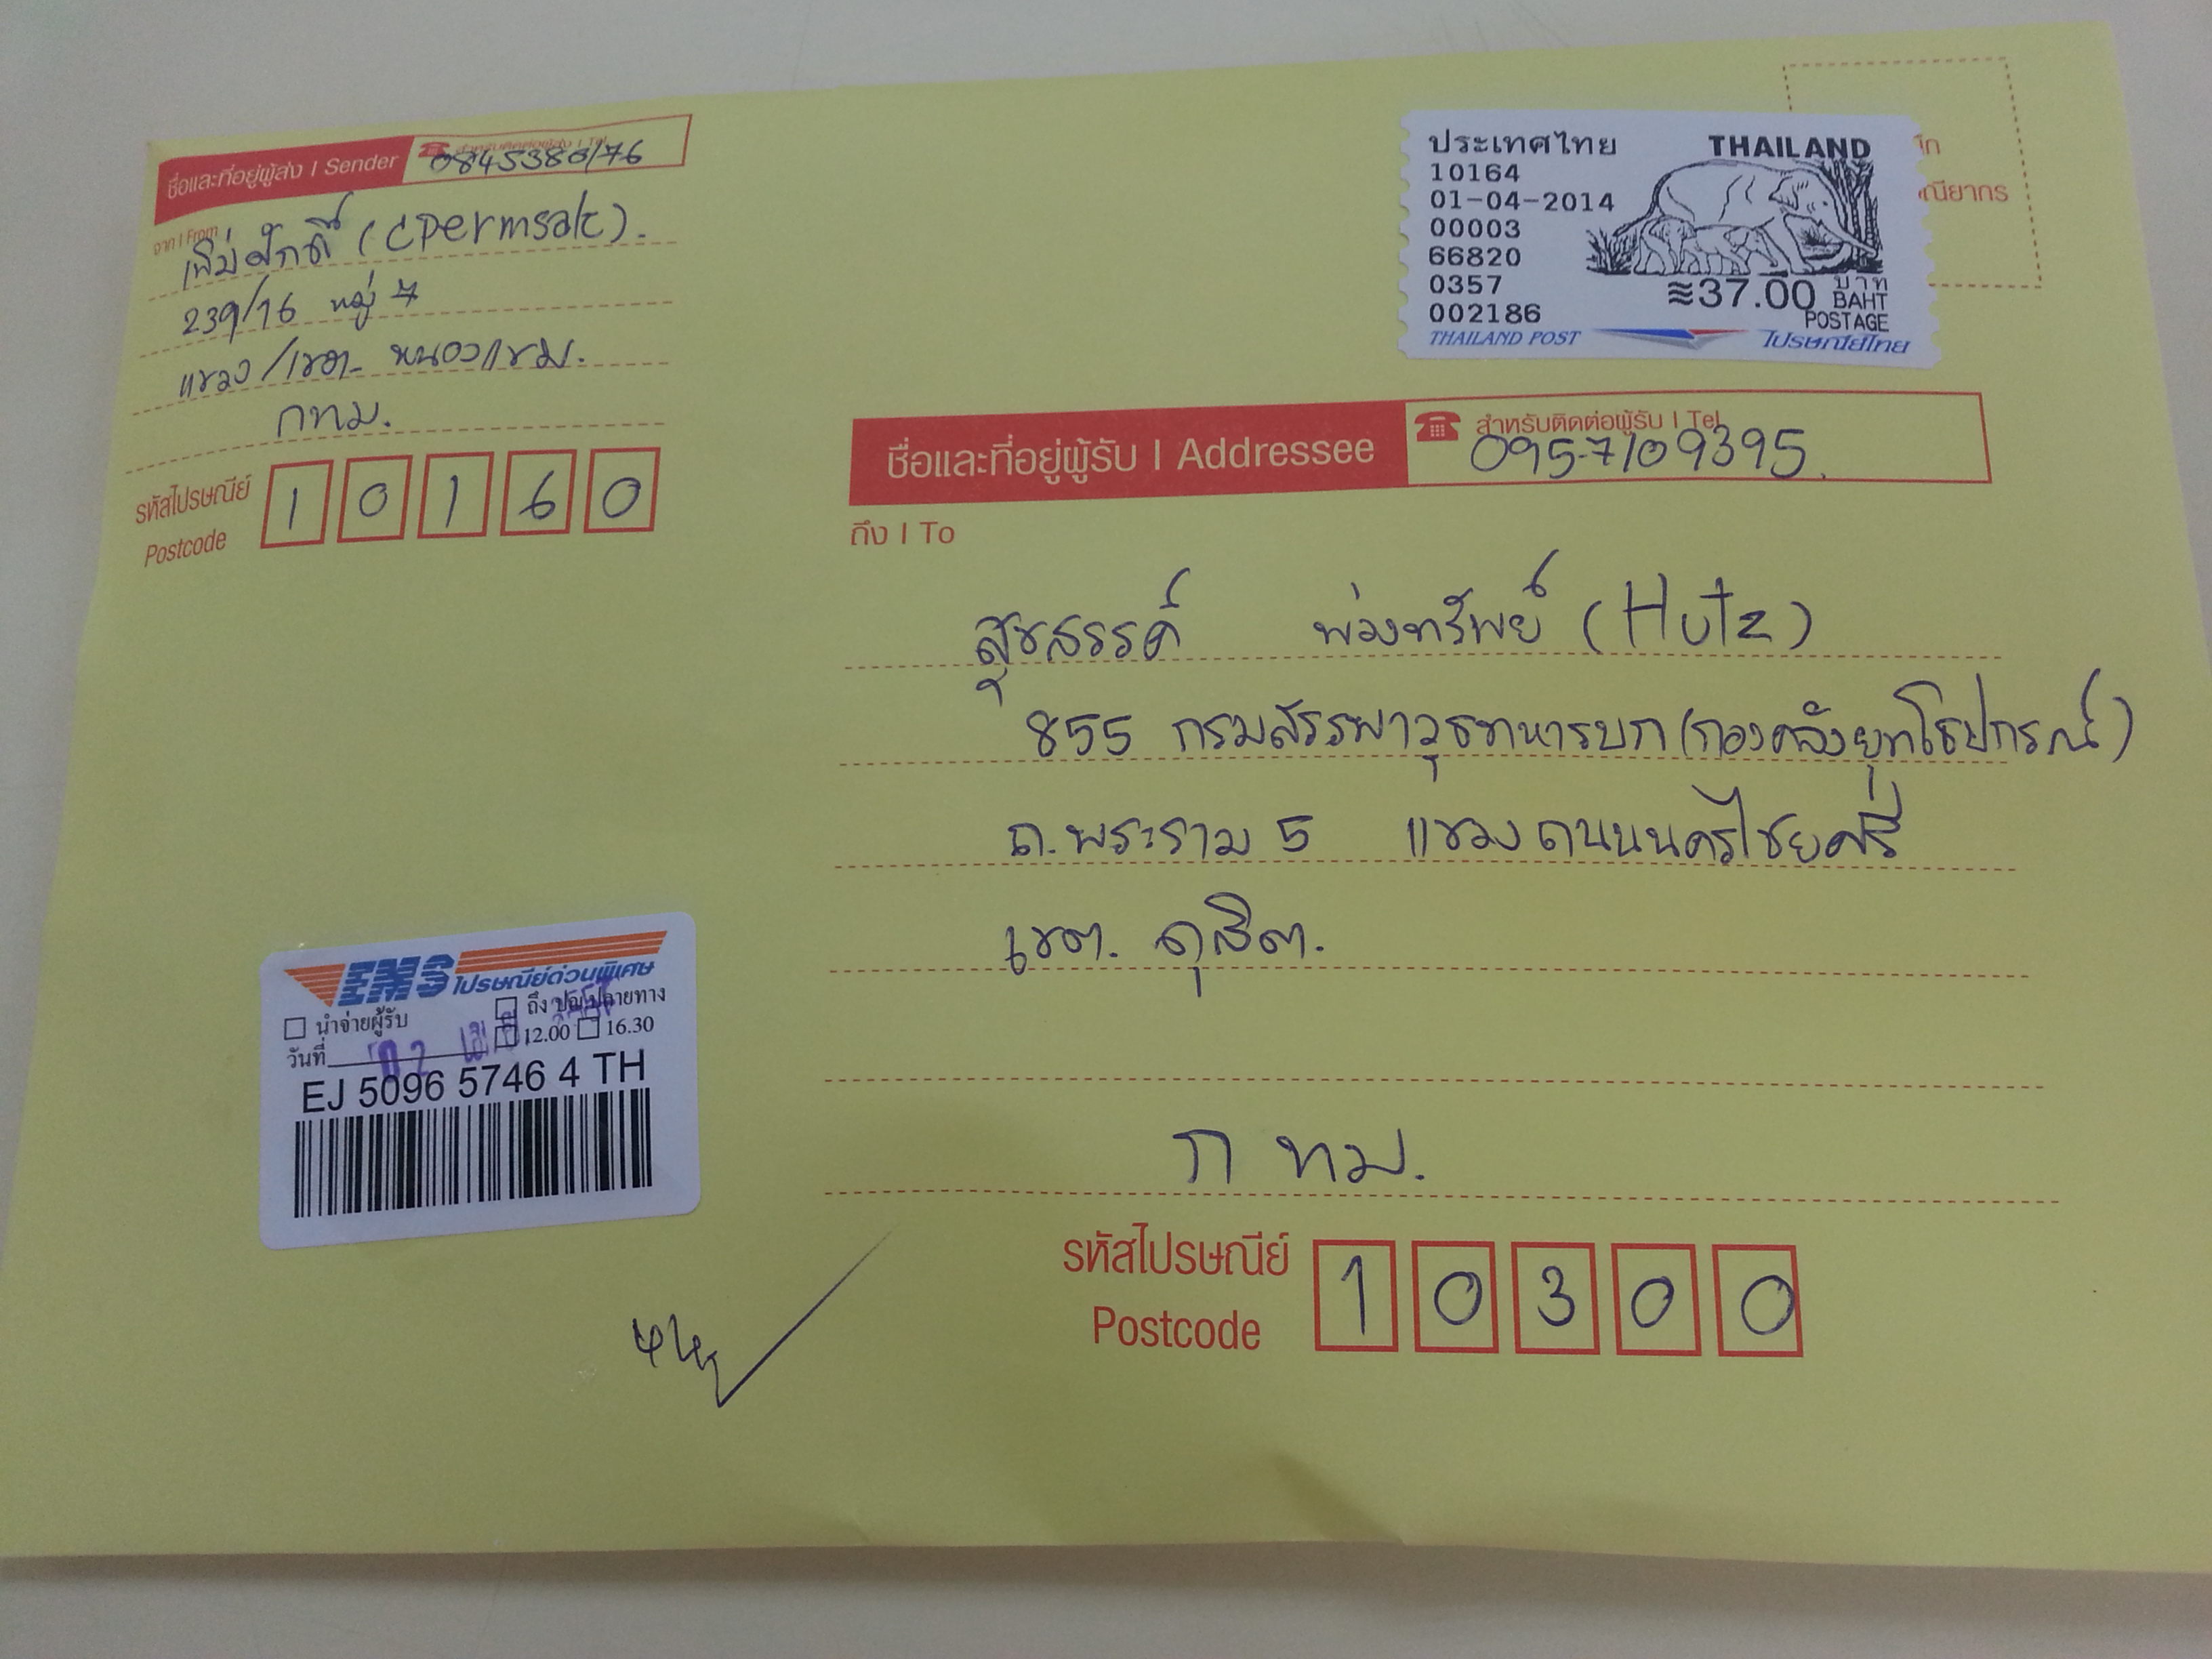 ชื่อและที่อยู่ผู้ส่ง | Sender
0845380176
จาก | From
เพิ่มศักดิ์ (cpermsak).
239/16 หมู่ 7
แขวง/เขต. หนองแขม.
กทม.
รหัสไปรษณีย์
Postcode
1 0 1 6 0
ประเทศไทย THAILAND
10164
01-04-2014
00003
66820
0357
002186
≋37.00 บาท BAHT
POSTAGE
THAILAND POST ไปรษณีย์ไทย
ชื่อและที่อยู่ผู้รับ | Addressee
สำหรับติดต่อผู้รับ | Tel
095-7109395.
ถึง | To
สุขสรรค์ พ่วงทรัพย์ (Hutz)
855 กรมสรรพาวุธทหารบก (กองคลังยุทโธปกรณ์)
ถ.พระราม 5 แขวงถนนนครไชยศรี
เขต. ดุสิต.
กทม.
รหัสไปรษณีย์
Postcode
1 0 3 0 0
EMS ไปรษณีย์ด่วนพิเศษ
นำจ่ายผู้รับ ถึง ปณ.ปลายทาง
วันที่ 12.00 16.30
02
EJ 5096 5746 4 TH